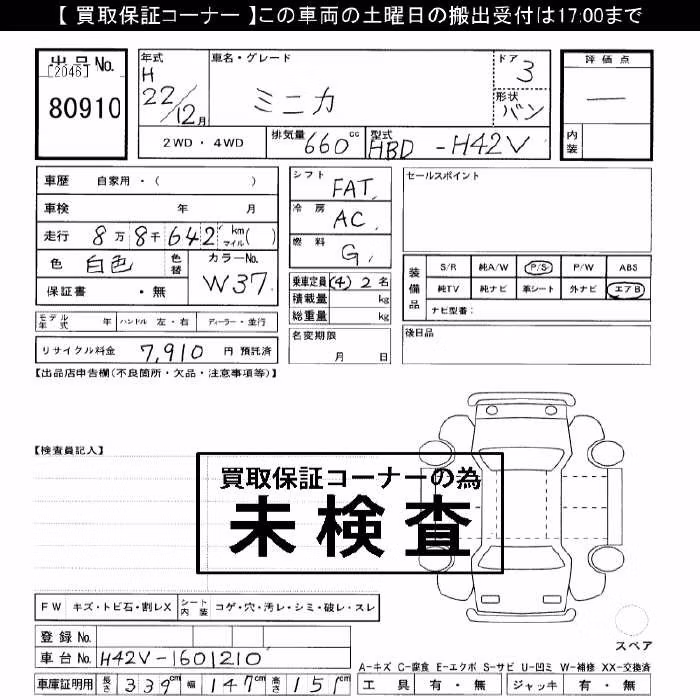 【 買取保証コーナー 】この車両の土曜日の搬出受付は17:00まで
出品No.
[2046]
80910
年式 H 22/12月
車名・グレード ミニカ
ドア 3
形状 バン
評価点 —
内装
2WD ・ 4WD
排気量 660 cc
型式 HBD-H42V
車歴 自家用・( )
車検 年 月
走行 8万8千642 km マイル( )
色 白色 色替 カラーNo. W37
保証書 ・ 無
モデル年式 年 ハンドル 左・右 ディーラー・並行
リサイクル料金 7,910 円 預託済
シフト FAT
冷房 AC
燃料 G
乗車定員 (4) 2 名
積載量 kg
総重量 kg
名変期限 月 日
セールスポイント
装備品
S/R 純A/W P/S P/W ABS
純TV 純ナビ 革シート 外ナビ エアB
ナビ型番:
後日品
【出品店申告欄(不良箇所・欠品・注意事項等)】
【検査員記入】
買取保証コーナーの為
未検査
FW キズ・トビ石・割レX シート内装 コゲ・穴・汚レ・シミ・破レ・スレ
登録No.
車台No. H42V-1601210
車庫証明用 長さ 339cm 幅 147cm 高さ 151cm
スペア
A-キズ C-腐食 E-エクボ S-サビ U-凹ミ W-補修 XX-交換済
工具 有・無 ジャッキ 有・無